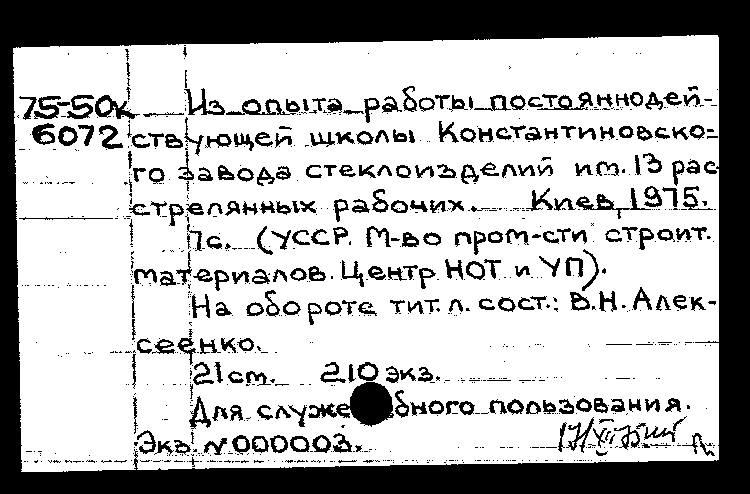 75-50к Из опыта работы постояннодей-
6072 ствующей школы Константиновско=
го завода стеклоизделий им. 13 рас
стрелянных рабочих. Киев, 1975.
7с. (УССР. М-во пром-сти строит.
материалов. Центр НОТ и УП).
На обороте тит. л. сост.: В.Н. Алек-
сеенко.
21 см. 210 экз.
Для служебного пользования.
Экз. N 000003.